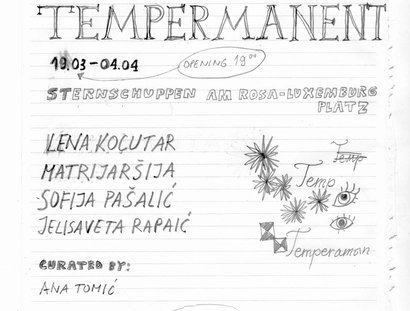 TEMPERMANENT
19.03-04.04
OPENING 19⁰⁰
STERNSCHUPPEN AM ROSA-LUXEMBURG
PLATZ
LENA KOÇUTAR
MATRIJARŠIJA
SOFIJA PAŠALIĆ
JELISAVETA RAPAIĆ
Temp
Temp
Temperaman
CURATED BY:
ANA TOMIĆ